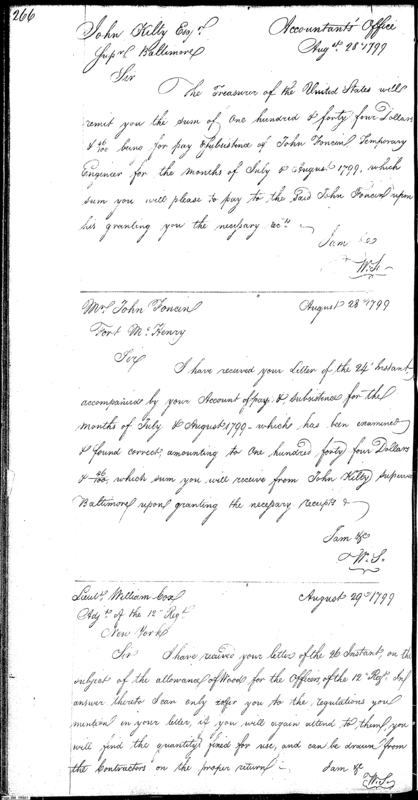 266
John Kilty Esqr. Accountants Office
Supr. Baltimore Augst. 28th 1799
Sir
The Treasurer of the United States will
remit you the sum of One hundred & forty four Dollars
& 46/100 being for pay & subsistence of John Foncin Temporary
Engineer for the months of July & August 1799, which
sum you will please to pay to the said John Foncin upon
his granting you the necessary &c.
I am &c
W.S.
Mr. John Foncin August 28th 1799
Fort McHenry
Sir
I have received your Letter of the 24th Instant,
accompanied by your Account of pay & subsistence for the
months of July & August 1799 - which has been examined
& found correct, amounting to One hundred forty four Dollars
& 46/100, which sum you will receive from John Kilty Supervisor
Baltimore upon granting the necessary receipts &
I am &c
W.S.
Lieut. William Cox August 29th 1799
Adjt. of the 12th Regt.
New York
Sir I have received your letter of the 26 Instant, on the
subject of the allowance of Wood for the Officers, of the 12th Regt. In
answer thereto I can only refer you to the regulations you
mention in your letter, if you will again attend to them, you
will find the quantity fixed for use, and can be drawn from
the Contractors on the proper return - I am &c
W.S.